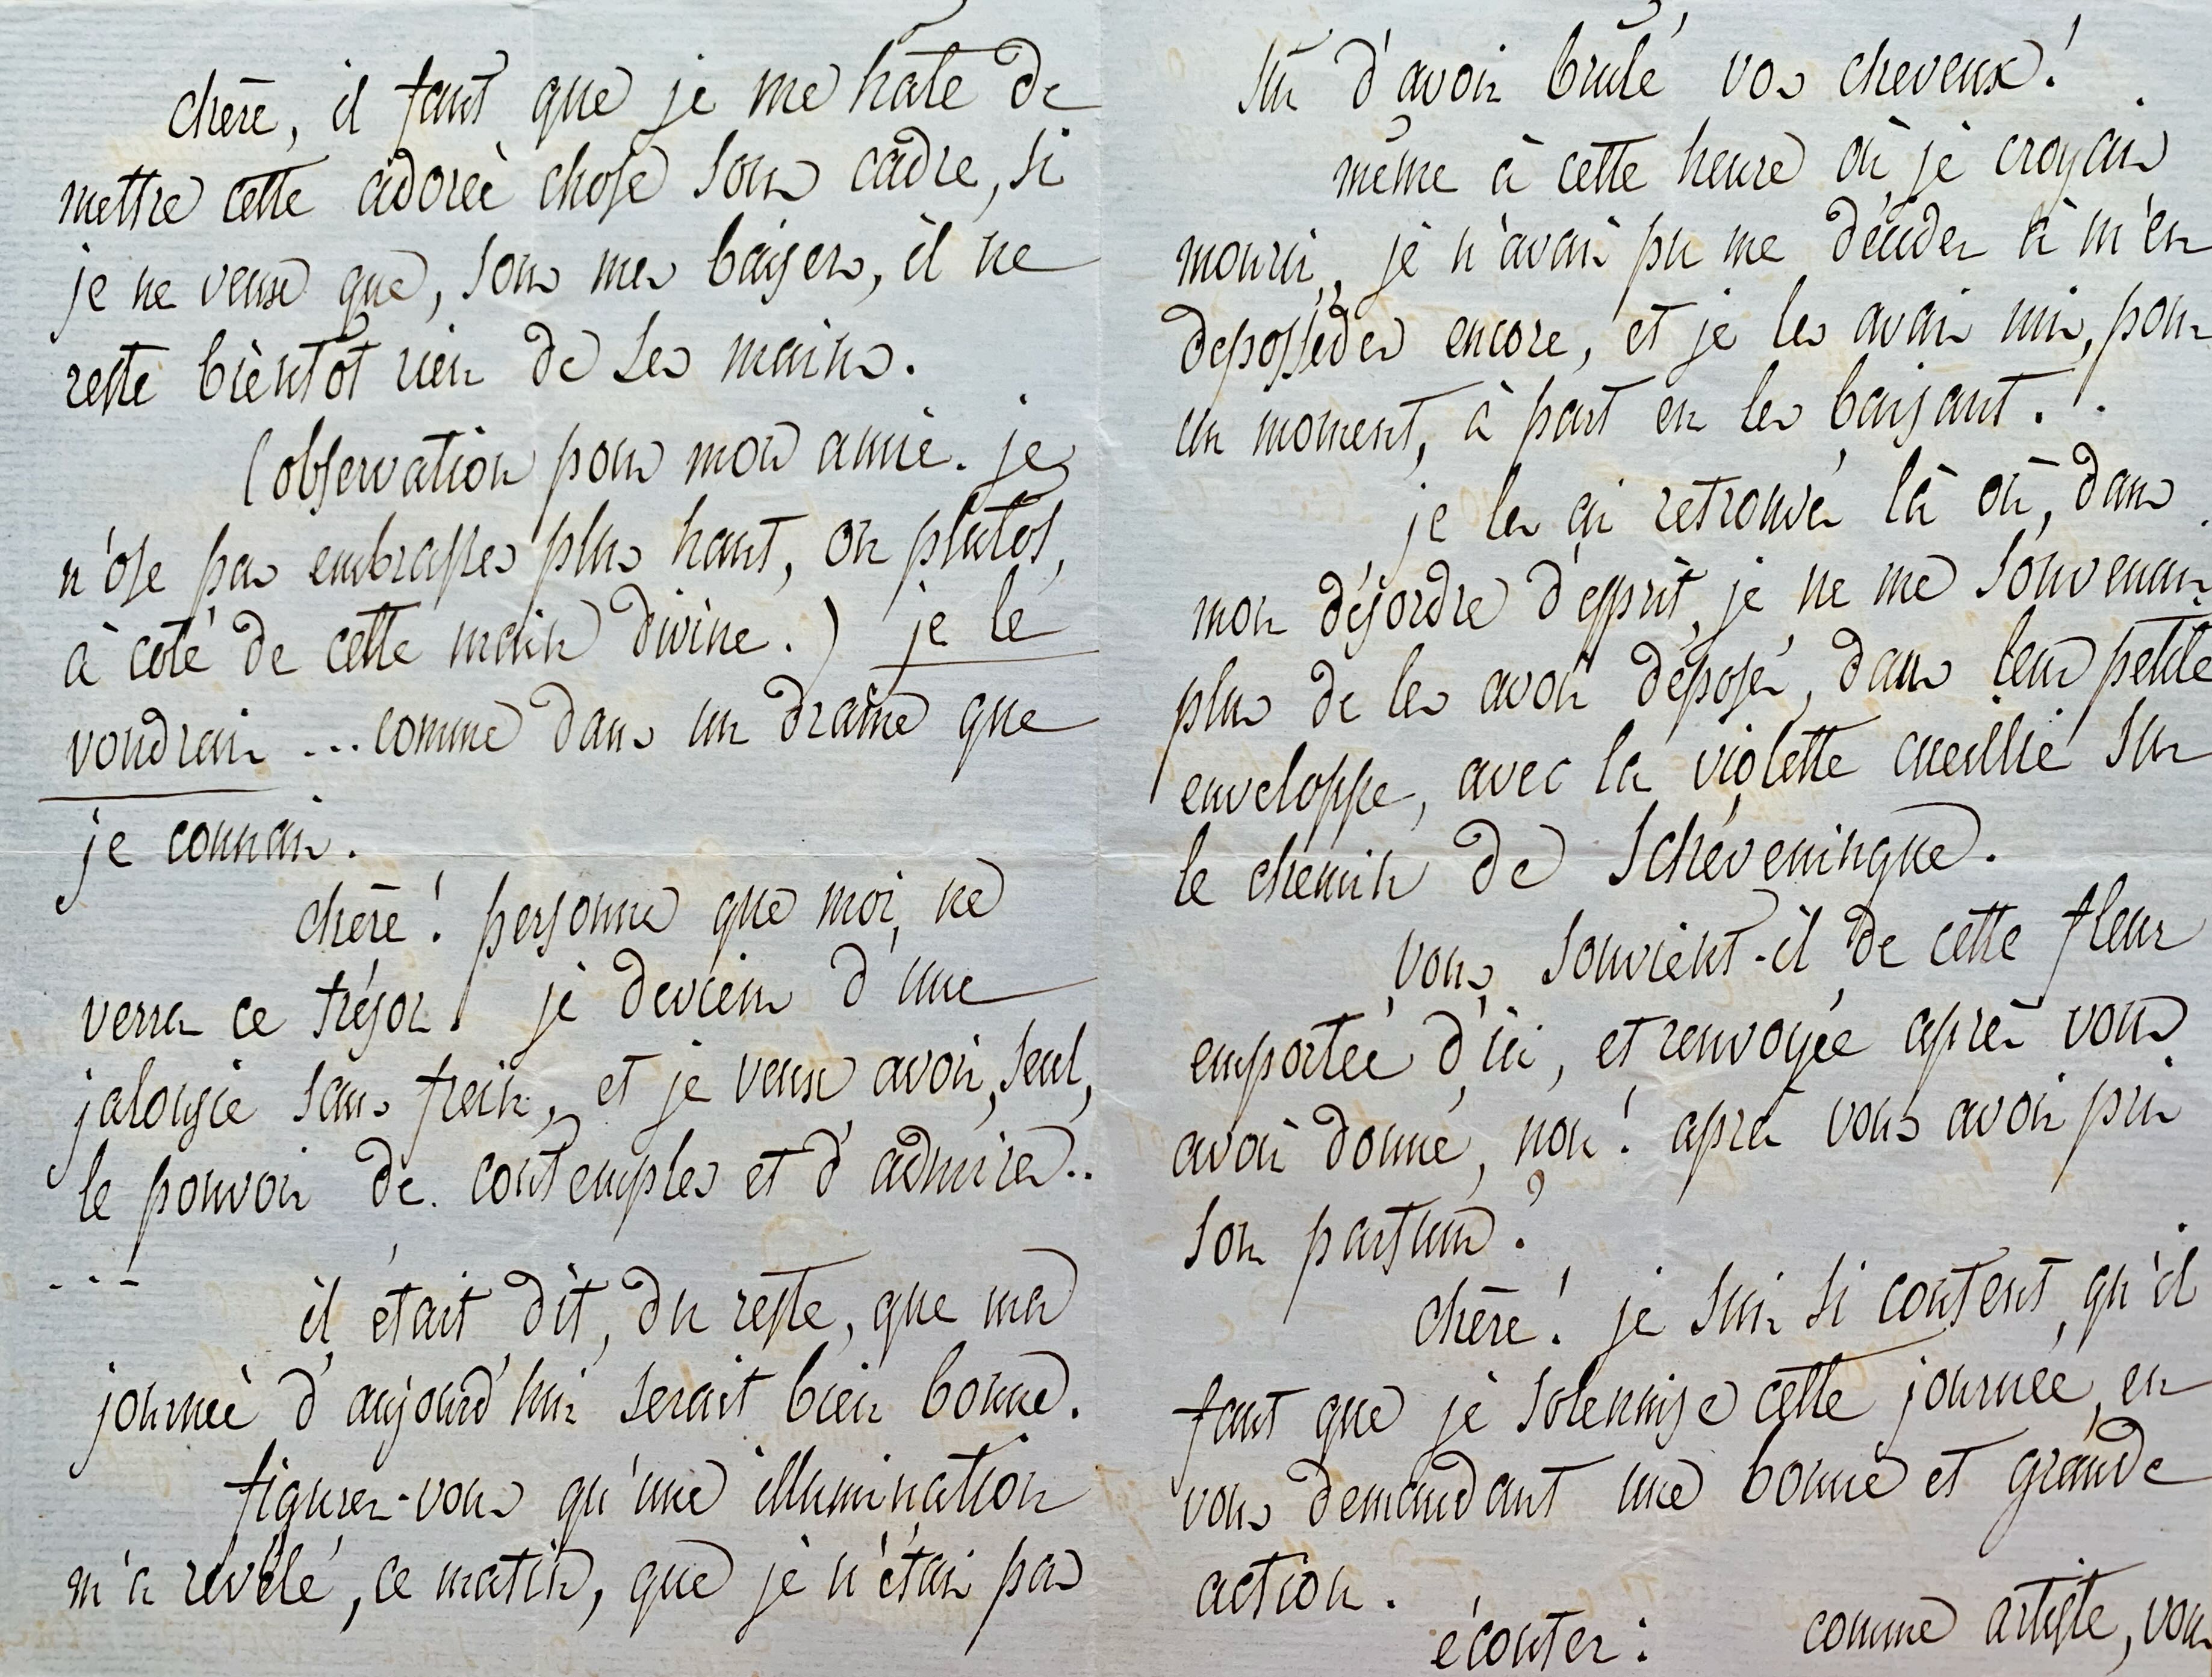 chère, il faut que je me hate de
mettre cette adorée chose sous cadre, si
je ne veux que, sous mes baisers, il ne
reste bientot rien de ses mains.
(observation pour mon amie. je
n'ose pas embrasser plus haut, ou plutot,
à coté de cette main divine.) je le
voudrais ... comme dans un drame que
je connais.
chère! personne que moi, ne
verra ce trésor. je deviens d'une
jalousie sans frein, et je veux avoir, seul,
le pouvoir de contempler et d'admirer..
...
il était dit, du reste, que ma
journée d'aujourd'hui serait bien bonne.
figurez-vous qu'une illumination
m'a révélé, ce matin, que je n'étais pas
sûr d'avoir brûlé vos cheveux!
même à cette heure où je croyais
mourir, je n'avais pu me décider à m'en
deposséder encore, et je les avais mis, pour
un moment, à part en les baisant.
je les ai retrouvés là où, dans
mon désordre d'esprit, je ne me souvenais
plus de les avoir déposés, dans leur petite
enveloppe, avec la violette cueillie sur
le chemin de Schéveningue.
vous souvient-il de cette fleur
emportée d'ici, et renvoyée après vous
avoir donné, non! après vous avoir pris
son parfum?
chère! je suis si content, qu'il
faut que je solennise cette journée, en
vous demandant une bonne et grande
action.
écoutez: comme artiste, vous